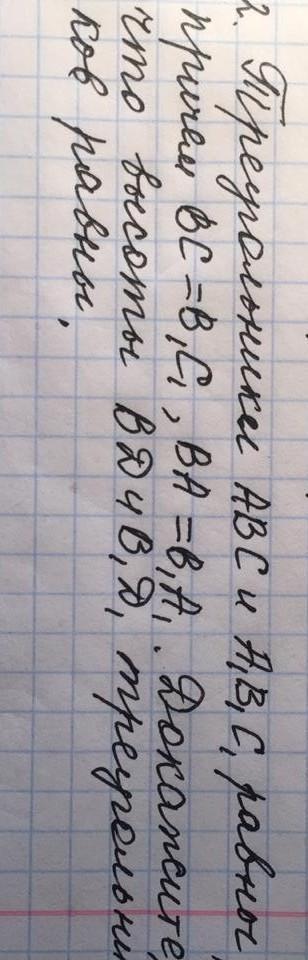 2. Треугольники ABC и A₁B₁C₁ равны,
причем BC = B₁C₁, BA = B₁A₁. Докажите,
что высоты BД и B₁Д₁ треугольни
ков равны.